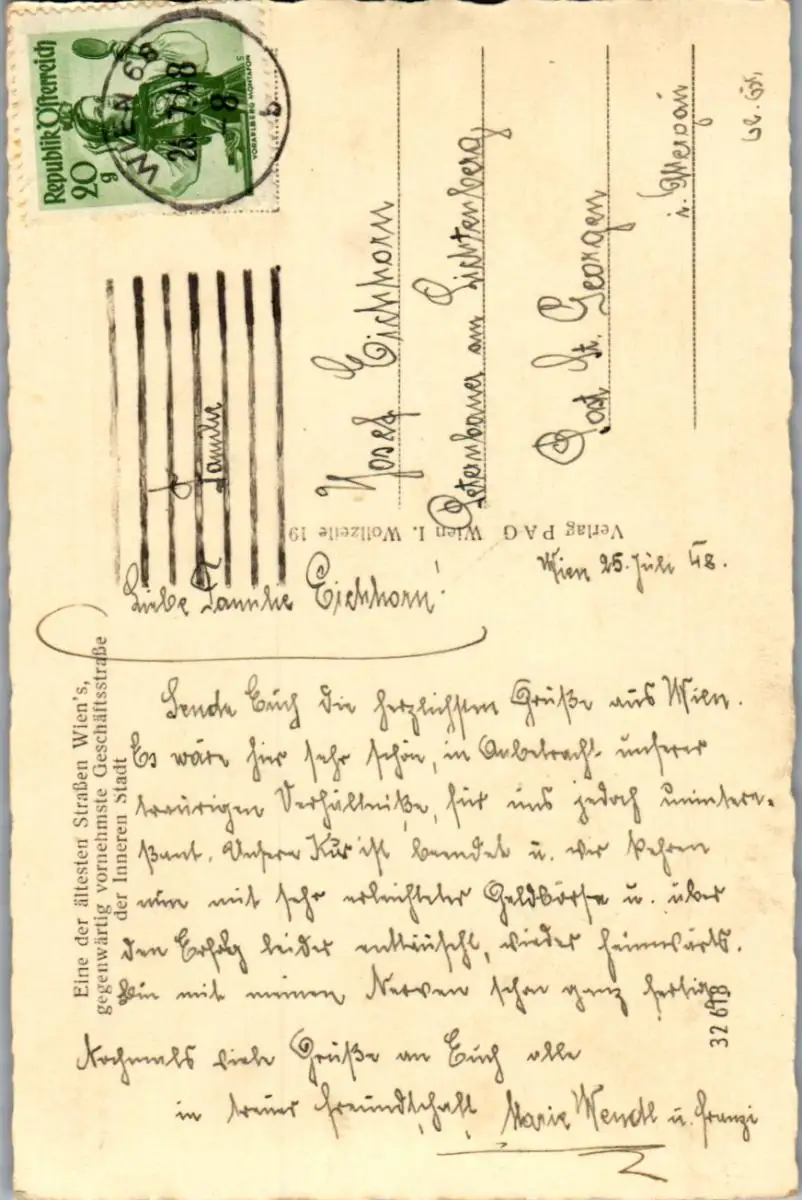 Republik Österreich
20 g
VORARLBERG MONTAFON
WIEN 68
26. 7. 48 - 8
b
Familie
Josef Eichhorn
Peternbauer am Lichtenberg
Post St. Georgen
i.
Verlag PAG Wien I. Wollzeile 19
Wien 25. Juli 48.
Liebe Familie Eichhorn!
Sende Euch die herzlichsten Grüße aus Wien.
Es wäre hier sehr schön, in Anbetracht unserer
traurigen Verhältniße, für uns jedoch unintere-
ßant. Unsere Kur ist beendet u. wir kehren
nun mit sehr erleichteter Geldbörse u. über
den Erfolg leider enttäuscht, wieder heimwärts.
Bin mit meinen Nerven schon ganz fertig.
Nochmals viele Grüße an Euch alle
in treuer Freundschaft Marie Wendl u. Franzi
Eine der ältesten Straßen Wien's,
gegenwärtig vornehmste Geschäftsstraße
der Inneren Stadt
32 618